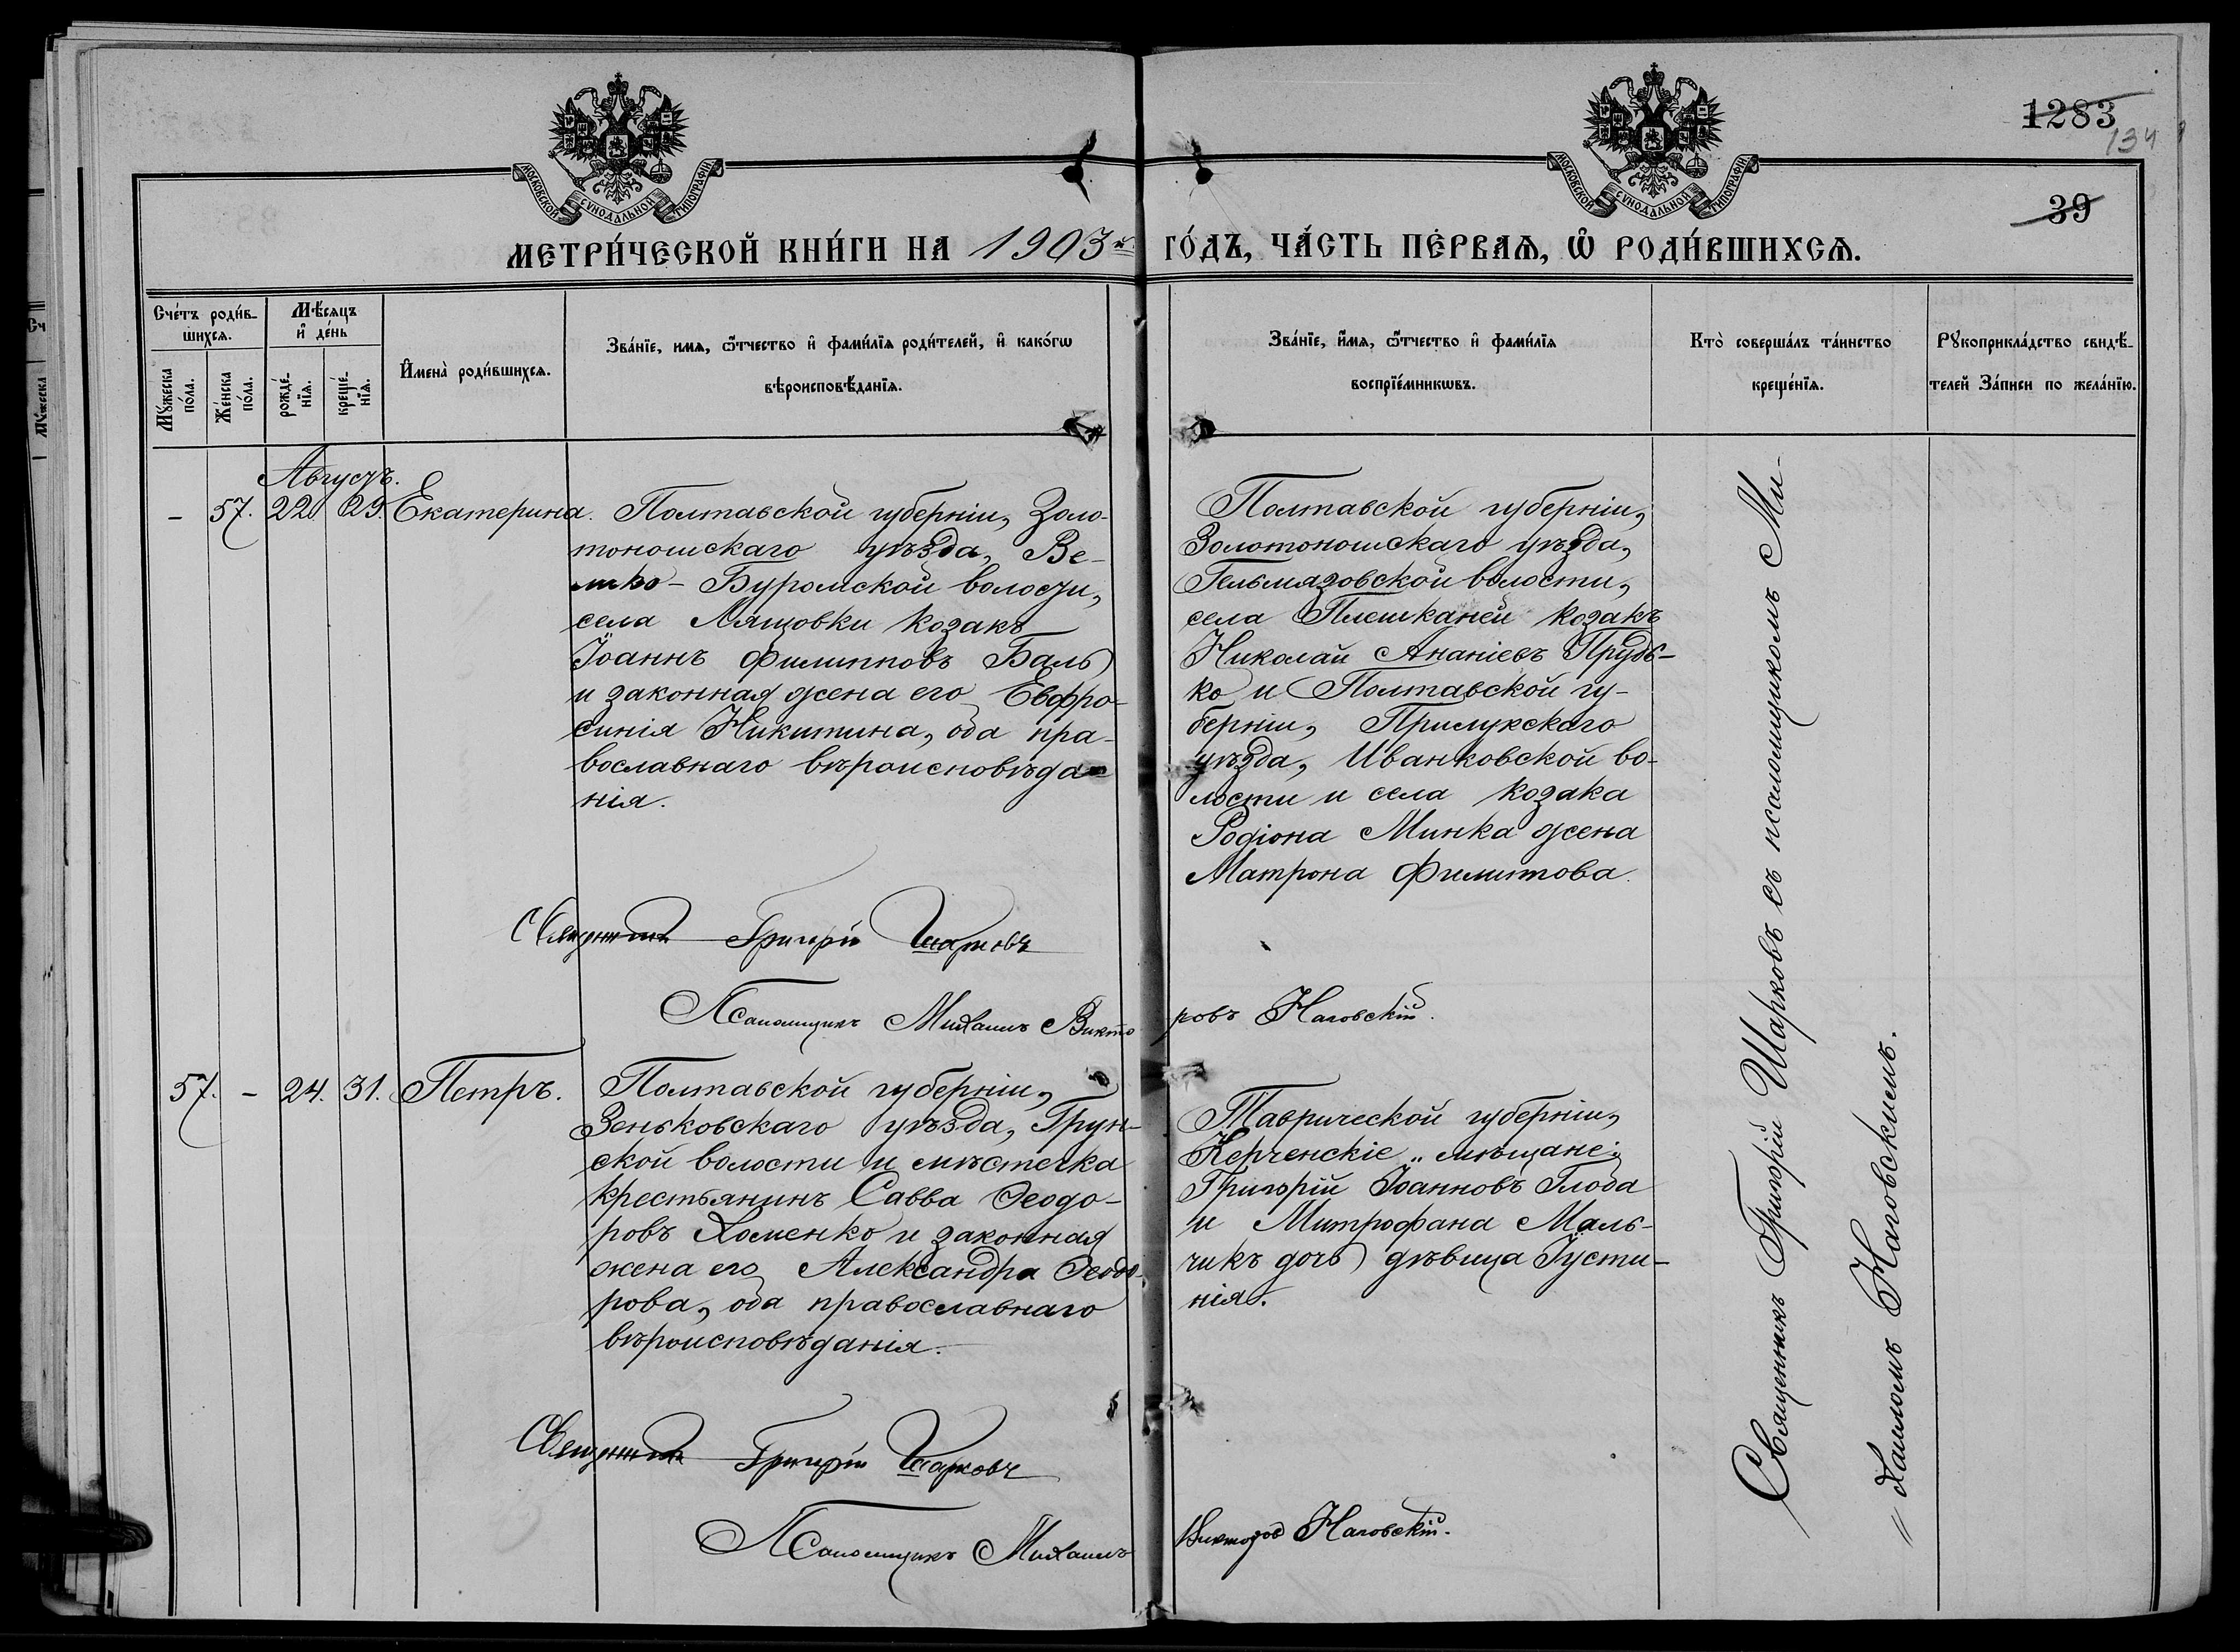 1283
134
39
МОСКОВСКОЙ СѴНОДАЛЬНОЙ ТИПОГРАФІИ
МОСКОВСКОЙ СѴНОДАЛЬНОЙ ТИПОГРАФІИ
МЕТРИ́ЧЕСКОЙ КНИ́ГИ НА 1903й ГО́ДЪ, ЧА́СТЬ ПЕ́РВАѦ, Ѡ҆ РОДИ́ВШИХСѦ.
Сче́тъ роди́в-
шихсѧ.
Мѣ́сѧцъ
и҆ де́нь
Мꙋ́жеска
по́ла.
Же́нска
по́ла.
рожде́-
нїѧ.
креще́-
нїѧ.
И҆мена̀ роди́вшихсѧ.
Зва́нїе, имѧ, ѻ҆́тчество и҆ фами́лїѧ роди́телей, и҆ како́гѡ
вѣроисповѣ́данїѧ.
Зва́нїе, и҆́мѧ, ѻ҆́тчество и҆ фами́лїѧ
воспрїе́мникѡвъ.
Кто̀ соверша́лъ та́инство
креще́нїѧ.
Рꙋкоприкла́дство свидѣ́-
телей За́писи по жела́нїю.
Августъ.
- 57. 22. 29. Екатерина.
Полтавской губерніи, Золо-
тоношскаго уѣзда, Ве-
лико-Буромской волости,
села Лящовки козакъ
Іоаннъ Филипповъ Баль
и законная жена его Евфро-
синія Никитина, оба пра-
вославнаго вѣроисповѣда-
нія.
Полтавской губерніи,
Золотоношскаго уѣзда,
Гельмязовской волости,
села Плешканей козакъ
Николай Ананіевъ Прудь-
ко и Полтавской гу-
берніи, Прилукскаго
уѣзда, Иванковской во-
лости и села козака
Родіона Минка жена
Матрона Филиппова.
Священникъ Григорій Шарковъ
Псаломщикъ Михаилъ Викто
ровъ Наговскій.
57. - 24. 31. Петръ.
Полтавской губерніи,
Зеньковскаго уѣзда, Грун-
ской волости и мѣстечка
крестьянинъ Савва Ѳеодо-
ровъ Хоменко и законная
жена его Александра Ѳеодо-
рова, оба православнаго
вѣроисповѣданія.
Таврической губерніи,
Керченскіе мѣщане:
Григорій Іоанновъ Глоба
и Митрофана Маль-
чикъ дочь дѣвица Іусти-
нія.
Священникъ Григорій Шарковъ
Псаломщикъ Михаилъ
Викторовъ Наговскій.
Священникъ Григорій Шарковъ съ псаломщикомъ Ми-
хаиломъ Наговскимъ.